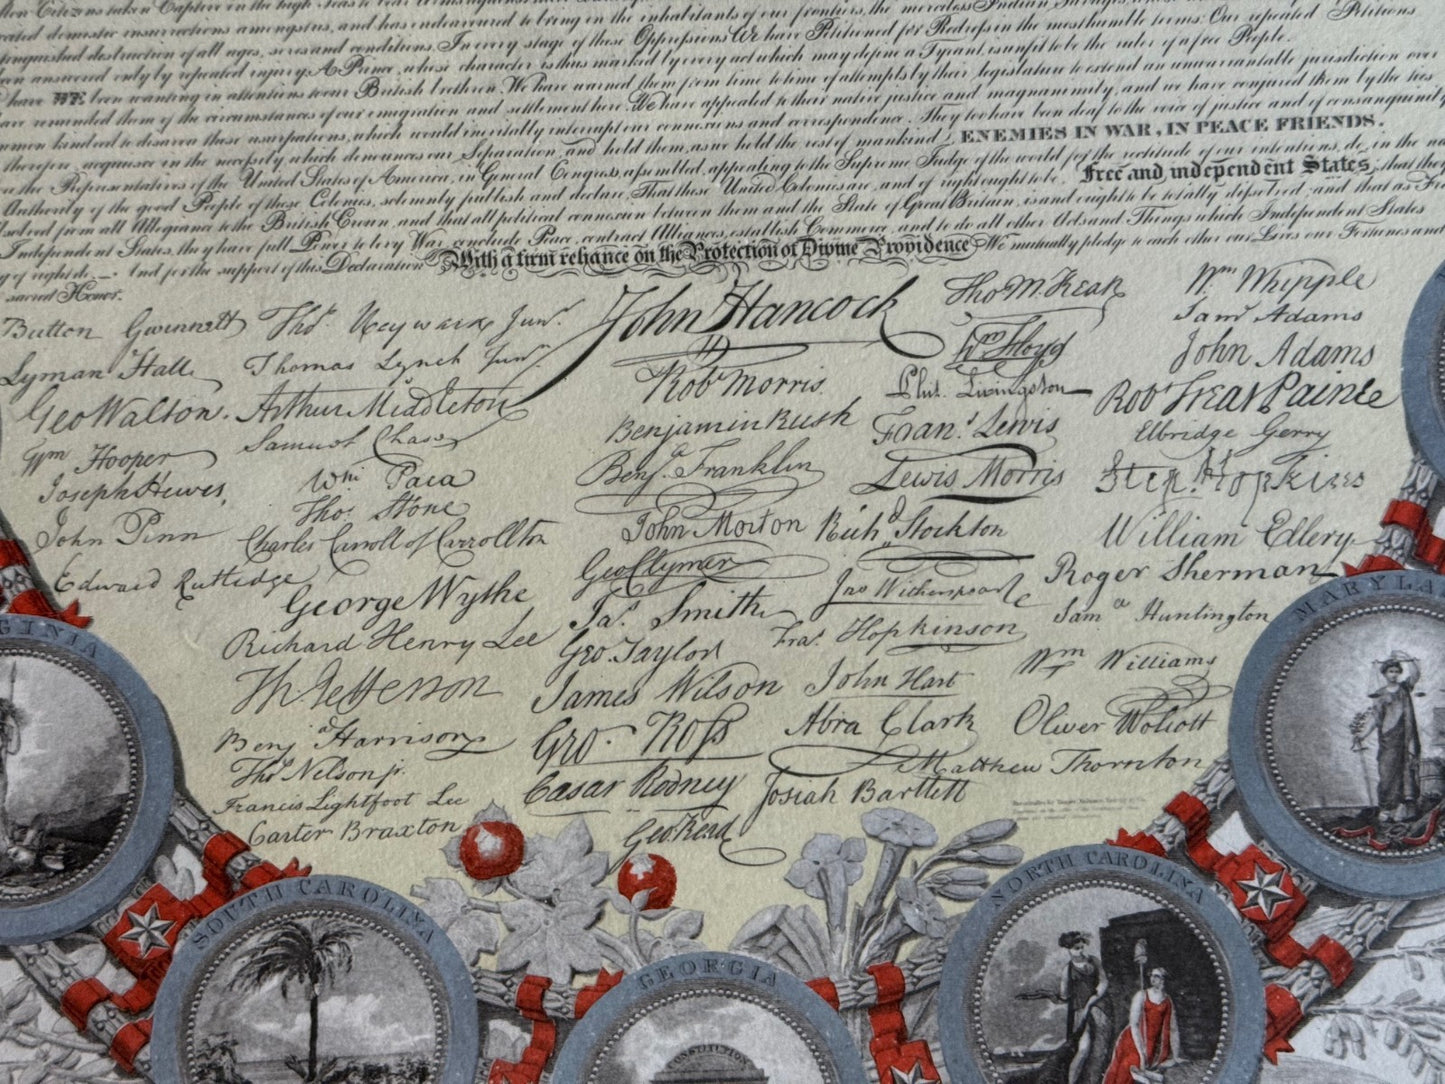 Citizens taken Captive on the high Seas to bear Arms against
domestic insurrections amongst us, and has endeavoured to bring on the inhabitants of our frontiers, the merciless Indian Savages, whose
destruction of all ages, sexes and conditions. In every stage of these Oppressions We have Petitioned for Redress in the most humble terms: Our repeated Petitions
been answered only by repeated injury. A Prince, whose character is thus marked by every act which may define a Tyrant, is unfit to be the ruler of a free People.
have WE been wanting in attentions to our British brethren. We have warned them from time to time of attempts by their legislature to extend an unwarrantable jurisdiction over
reminded them of the circumstances of our emigration and settlement here. We have appealed to their native justice and magnanimity, and we have conjured them by the ties
kindred to disavow these usurpations, which would inevitably interrupt our connexions and correspondence. They too have been deaf to the voice of justice and of consanguinity
therefore, acquiesce in the necessity, which denounces our Separation, and hold them, as we hold the rest of mankind, ENEMIES IN WAR, IN PEACE FRIENDS.
the Representatives of the United States of America, in General Congress, assembled, appealing to the Supreme Judge of the world for the rectitude of our intentions, do, in the
Authority of the good People of these Colonies, solemnly publish and declare, That these United Colonies are, and of right ought to be, Free and independent States; that they
from all Allegiance to the British Crown, and that all political connexion between them and the State of Great Britain, is and ought to be totally dissolved; and that as
Independent States, they have full Power to levy War, conclude Peace, contract Alliances, establish Commerce, and to do all other Acts and Things which Independent States
of right do.— And for the support of this Declaration With a firm reliance on the Protection of Divine Providence We mutually pledge to each other our Lives our Fortunes and
sacred Honor.
Button Gwinnett
Lyman Hall
Geo Walton.
Wm Hooper
Joseph Hewes,
John Penn
Edward Rutledge
Thos. Heyward Junr.
Thomas Lynch Junr.
Arthur Middleton
Samuel Chase
Wm Paca
Thos. Stone
Charles Carroll of Carrollton
George Wythe
Richard Henry Lee
Th. Jefferson
Benja Harrison
Thos Nelson jr.
Francis Lightfoot Lee
Carter Braxton
John Hancock
Robt Morris.
Benjamin Rush
Benja. Franklin
John Morton
Geo Clymer
Jas. Smith
Geo. Taylor
James Wilson
Geo. Ross
Cæsar Rodney
Geo Read
Tho M. Kean
Wm Floyd
Phil. Livingston
Frans. Lewis
Lewis Morris
Richd Stockton
Jno Witherspoon
Fras. Hopkinson
John Hart
Abra Clark
Josiah Bartlett
Wm Whipple
Saml Adams
John Adams
Robt Treat Paine
Elbridge Gerry
Step. Hopkins
William Ellery
Roger Sherman
Samel Huntington
Wm Williams
Oliver Wolcott
Matthew Thornton
GINIA
SOUTH CAROLINA
GEORGIA
CONSTITUTION
NORTH CAROLINA
MARYLA